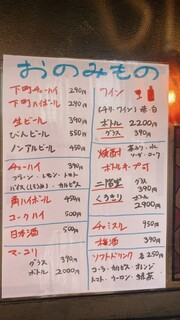 おのみもの
下町チューハイ 290円
下町ハイボール 290円
生ビール 390円
びんビール 550円
ノンアルビール 450円
チューハイ 390円
プレーン・レモン・トマト
バイス(しそうめ)・カルピス
角ハイボール 450円
コークハイ 500円
日本酒 500円
マーユリ
グラス 390円
ボトル 2000円
ワイン
(チリ・ワイン) 赤・白
ボトル 2200円
グラス 390円
焼酎
ボトルキープ可
二階堂 グラス 390円
くろきり ボトル 2900円
チャミスル 950円
梅酒 390円
ソフトドリンク 各250円
コーラ・カルピス・オレンジ
トマト・ウーロン・緑茶